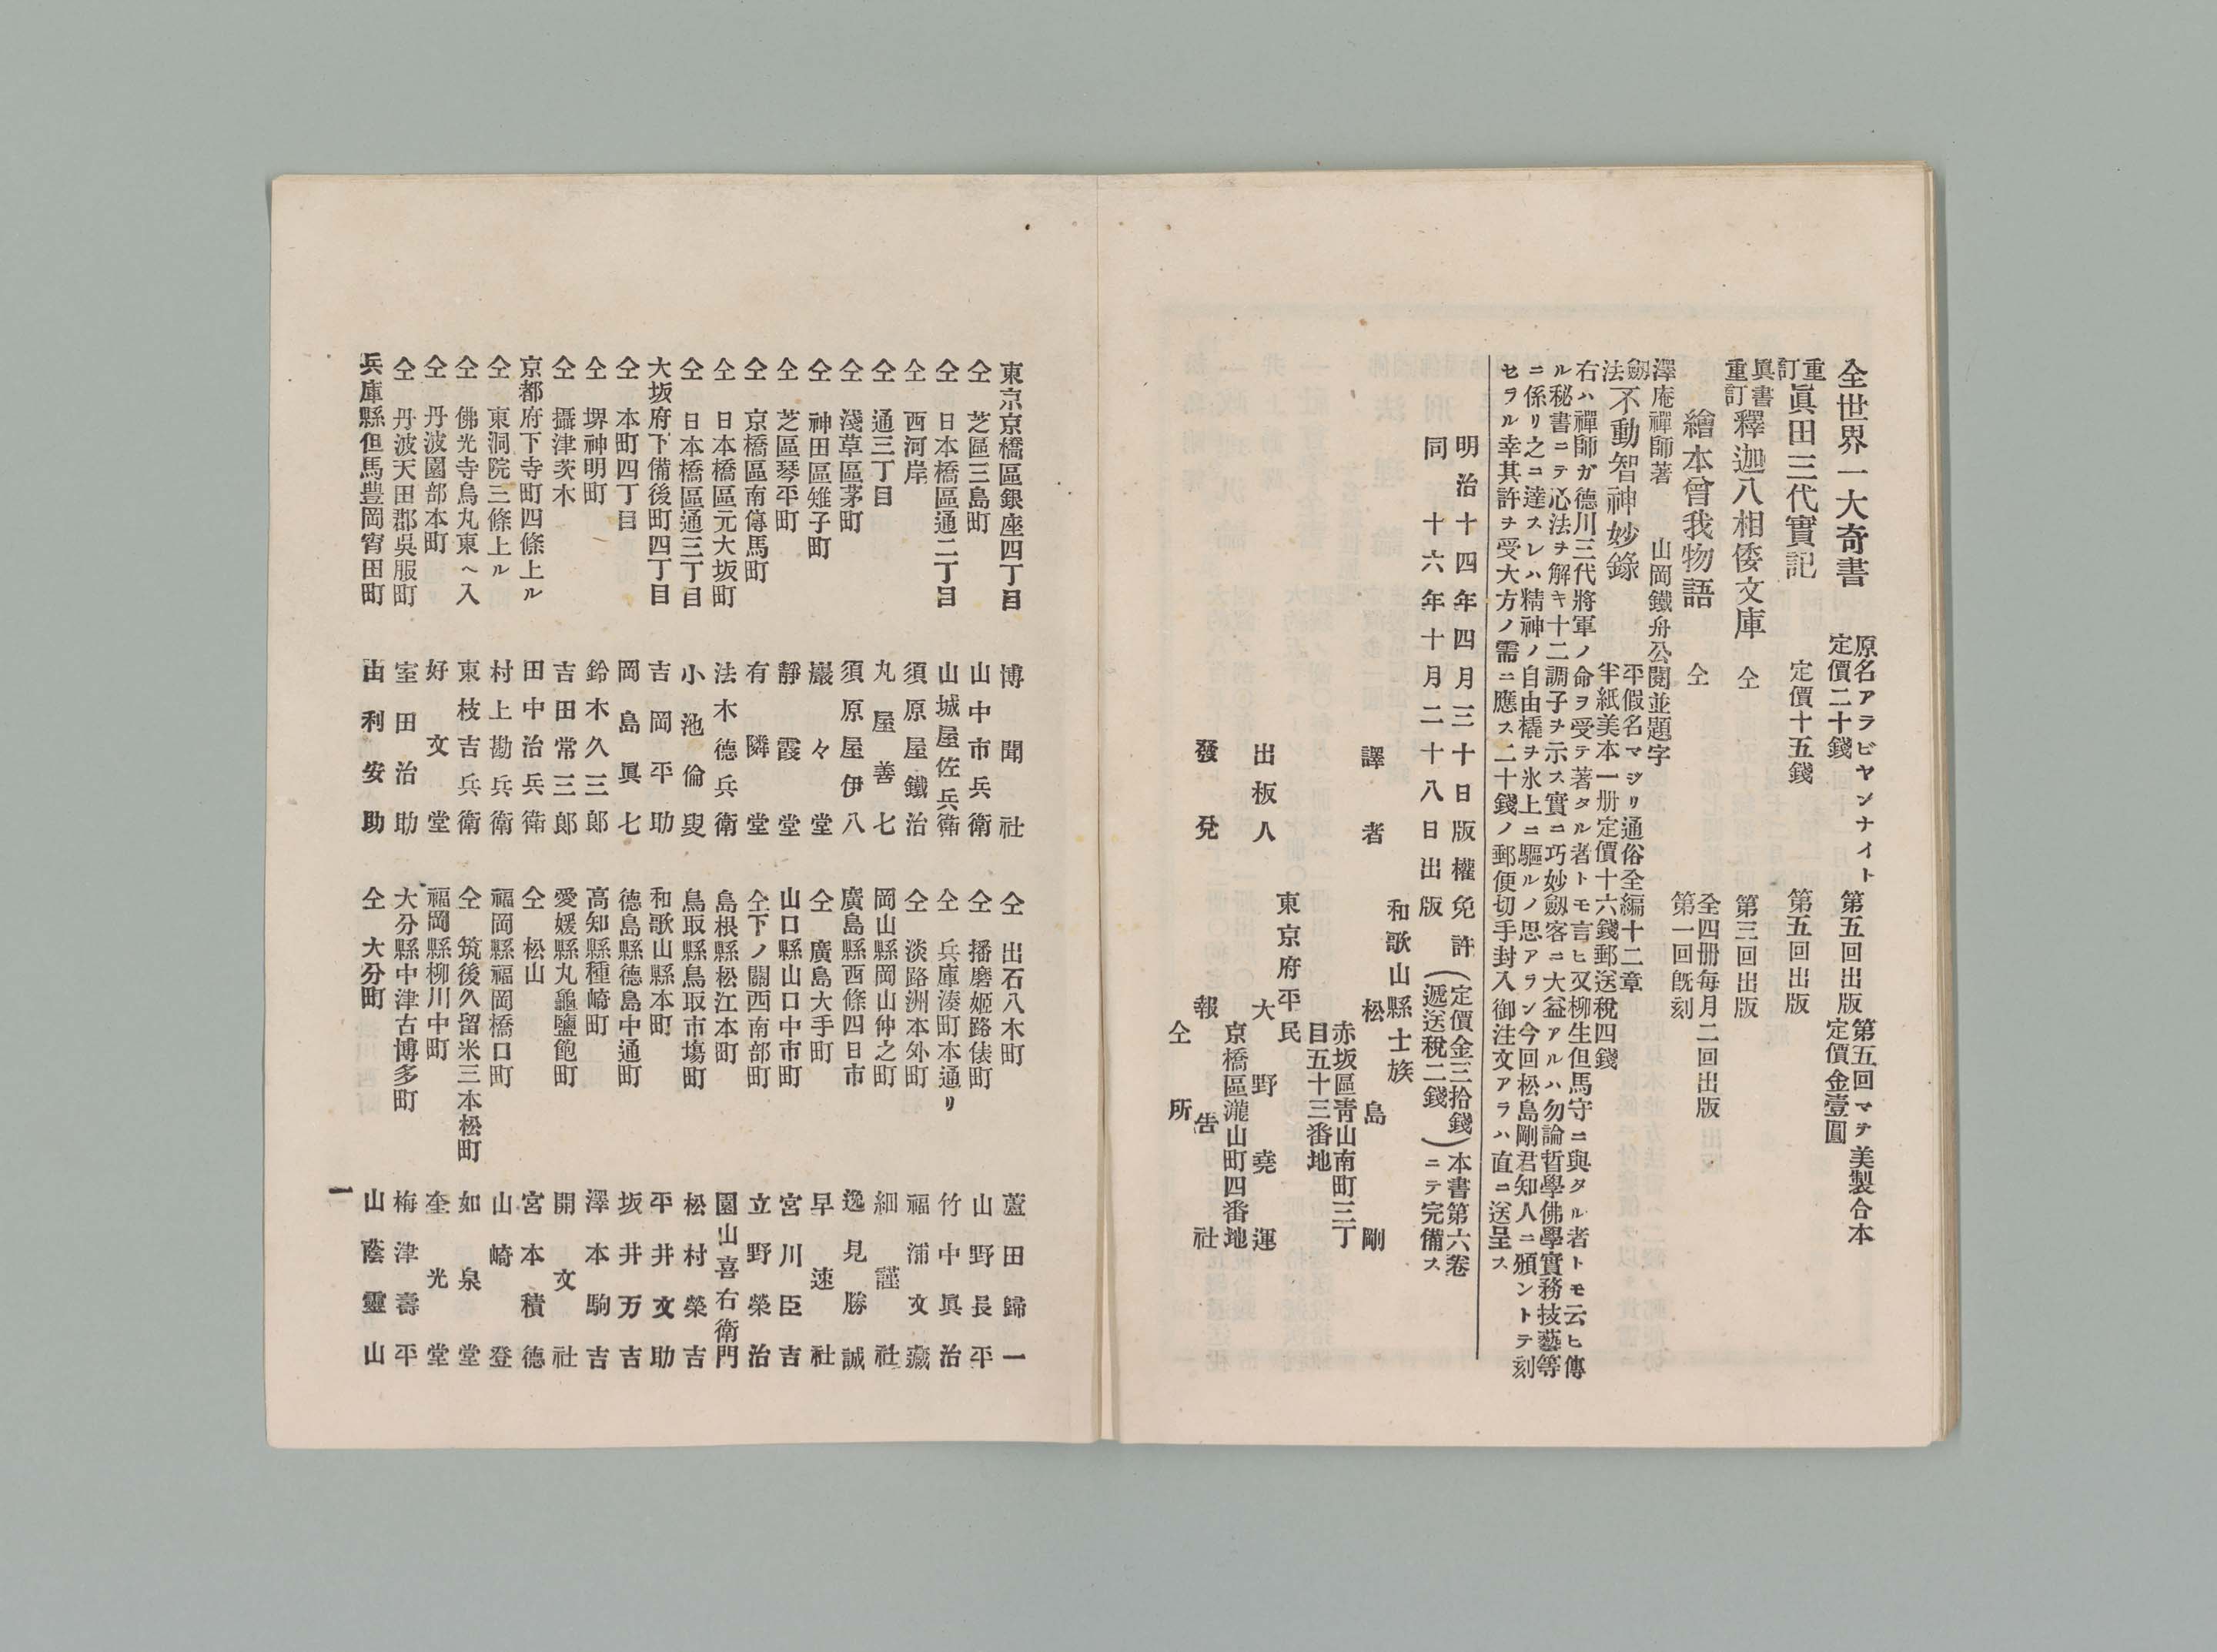 全世界一大奇書 原名アラビヤンナイト 定價二十錢 第五回出版 第五回マテ美製合本 定價金壹圓
重訂 眞田三代實記 定價十五錢 第五回出版
眞書重訂 釋迦八相倭文庫 仝 第三回出版
繪本曾我物語 仝 全四册毎月二回出版 第一回既刻
澤庵禪師著 山岡鐵舟公閲並題字
劔法 不動智神妙錄 平假名マジリ通俗全編十二章 半紙美本一册定價十六錢郵送税四錢
右ハ禪師ガ德川三代將軍ノ命ヲ受テ著タル者トモ言ヒ又柳生但馬守ニ與タル者トモ云ヒ傳
ル秘書ニテ心法ヲ解キ十二調子ヲ示ス實ニ巧妙劔客ニ大益アルハ勿論哲學佛學實務技藝等
ニ係リ之ニ達スレハ精神ノ自由橇ヲ氷上ニ驅ルノ思アラン今回松島剛君知人ニ頒ントテ刻
セラル幸其許ヲ受大方ノ需ニ應ス二十錢ノ郵便切手封入御注文アラハ直ニ送呈ス
明治十四年四月三十日版權免許 (定價金三拾錢)本書第六卷
同十六年十月二十八日出版 (遞送税二錢)ニテ完備ス
和歌山縣士族
譯者 松島剛
赤坂區靑山南町三丁
目五十三番地
東京府平民
出板人 大野堯運
京橋區瀧山町四番地
發兌 報告社
仝所
東京京橋區銀座四丁目 博聞社
仝 芝區三島町 山中市兵衛
仝 日本橋區通二丁目 山城屋佐兵衛
仝 西河岸 須原屋鐵治
仝 通三丁目 丸屋善七
仝 淺草區茅町 須原屋伊八
仝 神田區雉子町 巖々堂
仝 芝區琴平町 靜霞堂
仝 京橋區南傳馬町 有隣堂
仝 日本橋區元大坂町 法木德兵衛
仝 日本橋區通三丁目 小池倫叟
大坂府下備後町四丁目 吉岡平助
仝 本町四丁目 岡島眞七
仝 堺神明町 鈴木久三郎
仝 攝津茨木 吉田常三郎
京都府下寺町四條上ル 田中治兵衛
仝 東洞院三條上ル 村上勘兵衛
仝 佛光寺烏丸東ヘ入 東枝吉兵衛
仝 丹波園部本町 好文堂
仝 丹波天田郡呉服町 室田治助
兵庫縣但馬豊岡宵田町 由利安助
仝 出石八木町 蘆田歸一
仝 播磨姫路俵町 山野長平
仝 兵庫湊町本通リ 竹中眞治
仝 淡路洲本外町 福浦文藏
岡山縣岡山仲之町 細謹社
廣島縣西條四日市 逸見勝誠
仝 廣島大手町 早速社
山口縣山口中市町 宮川臣吉
仝下ノ關西南部町 立野榮治
島根縣松江本町 園山喜右衛門
鳥取縣鳥取市塲町 松村榮吉
和歌山縣本町 平井文助
德島縣德島中通町 坂井万吉
高知縣種崎町 澤本駒吉
愛媛縣丸龜鹽飽町 開文社
仝 松山 宮本積德
福岡縣福岡橋口町 山崎登
仝 筑後久留米三本松町 如泉堂
福岡縣柳川中町 奎光堂
大分縣中津古博多町 梅津壽平
仝 大分町 山蔭靈山
一